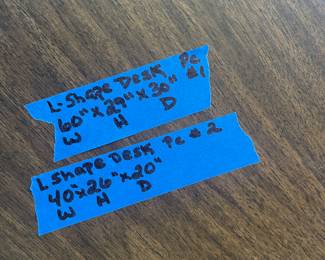 L-Shape Desk Pc
#1
60" x 29" x 30"
W H D
L Shape Desk Pc # 2
40" x 26" x 20"
W H D